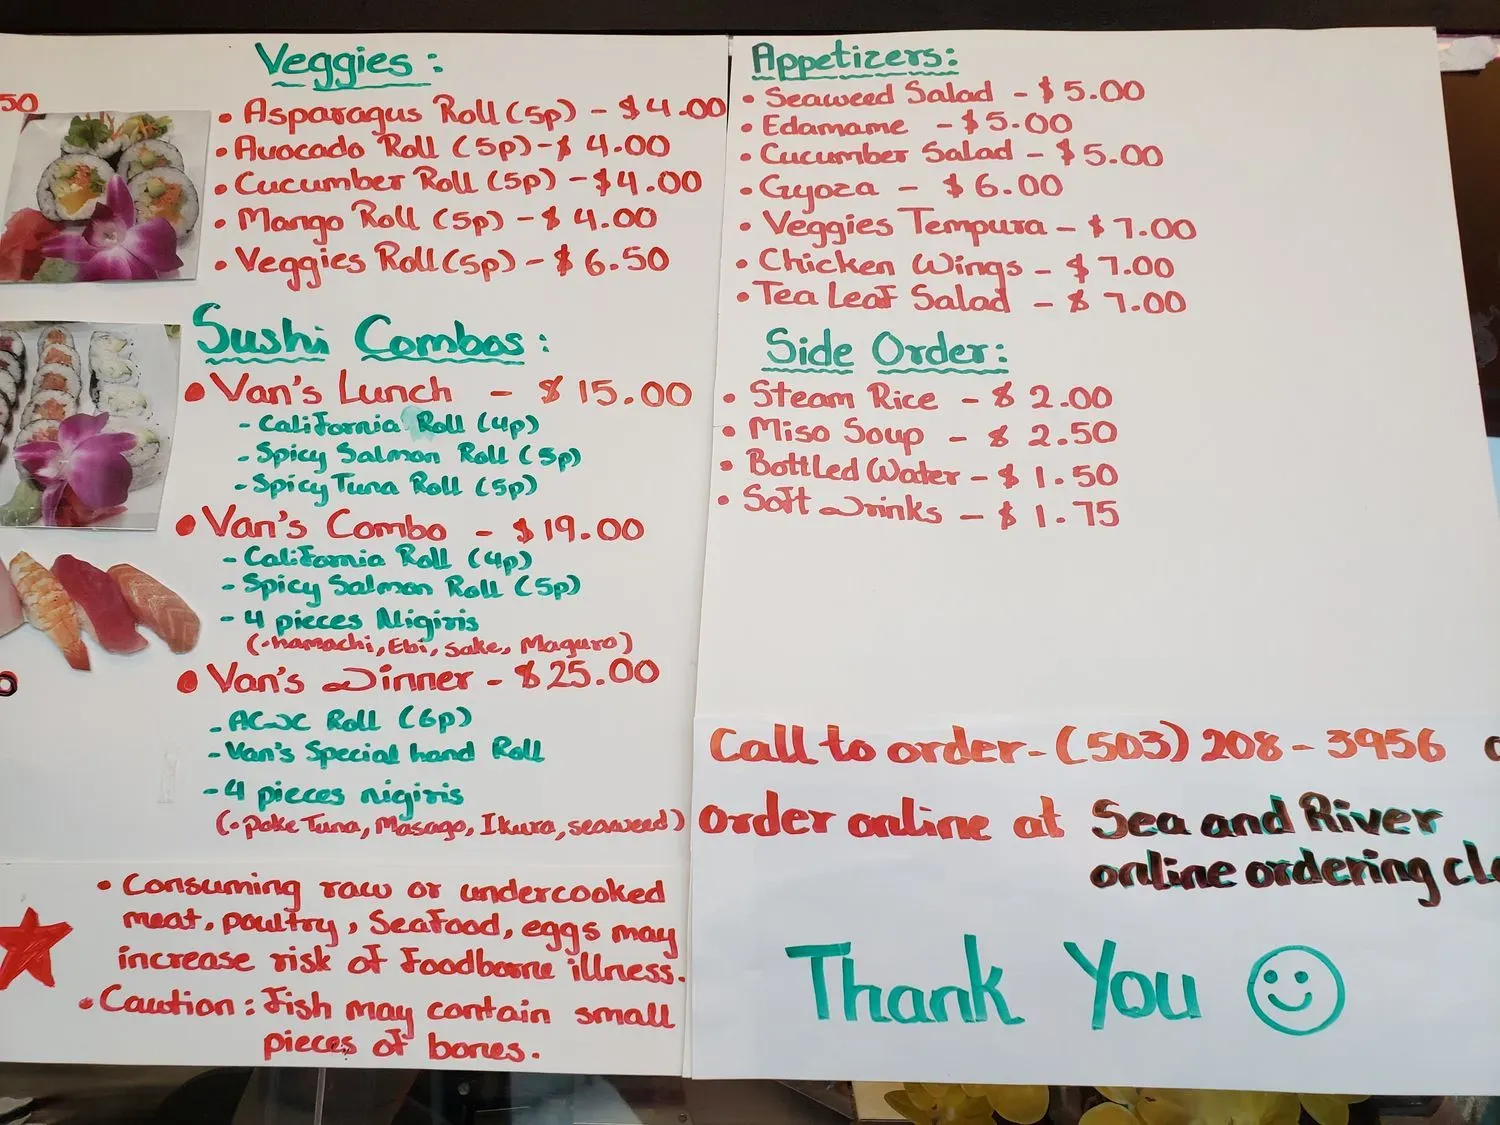 50
Veggies:
• Asparagus Roll (5p) - $4.00
• Avocado Roll (5p) - $4.00
• Cucumber Roll (5p) - $4.00
• Mango Roll (5p) - $4.00
• Veggies Roll (5p) - $6.50
Sushi Combos:
• Van's Lunch - $15.00
- California Roll (4p)
- Spicy Salmon Roll (5p)
- Spicy Tuna Roll (5p)
• Van's Combo - $19.00
- California Roll (4p)
- Spicy Salmon Roll (5p)
- 4 pieces Nigiris
(•hamachi, Ebi, Sake, Maguro)
• Van's Dinner - $25.00
- ACDC Roll (6p)
- Van's Special hand Roll
- 4 pieces nigiris
(•Poke Tuna, Masago, Ikura, seaweed)
• Consuming raw or undercooked
meat, poultry, Seafood, eggs may
increase risk of Foodborne illness.
• Caution: Fish may contain small
pieces of bones.
Appetizers:
• Seaweed Salad - $5.00
• Edamame - $5.00
• Cucumber Salad - $5.00
• Gyoza - $6.00
• Veggies Tempura - $7.00
• Chicken Wings - $7.00
• Tea Leaf Salad - $7.00
Side Order:
• Steam Rice - $2.00
• Miso Soup - $2.50
• Bottled Water - $1.50
• Soft Drinks - $1.75
Call to order - (503) 208 - 3956
order online at Sea and River
online ordering
Thank You